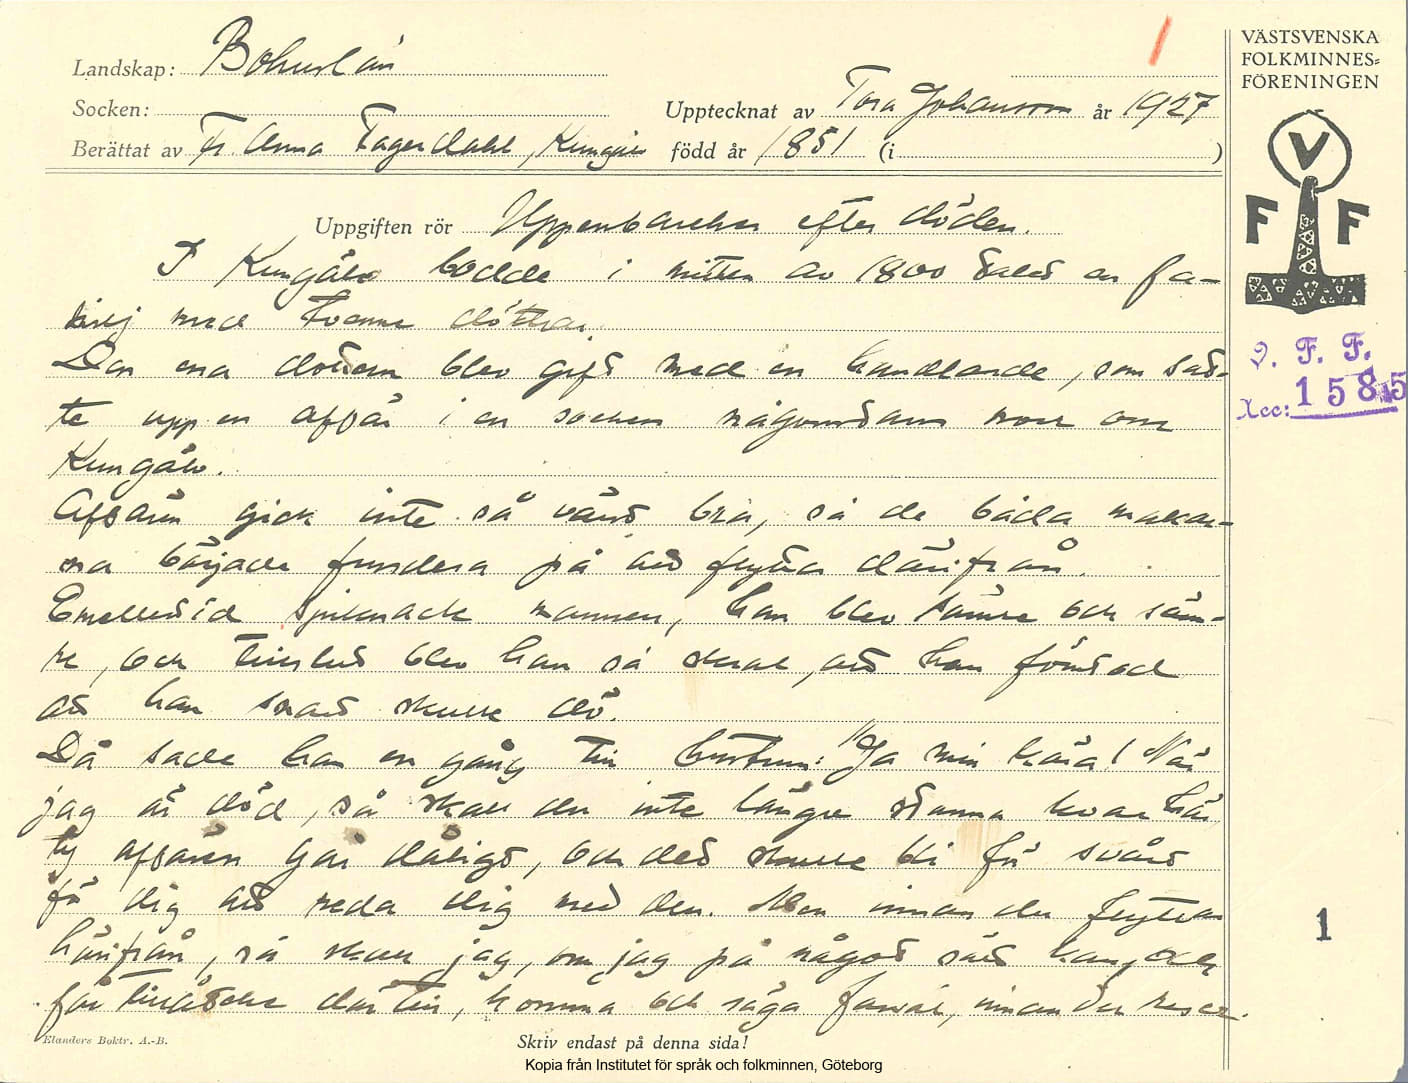 Landskap: Bohuslän
Socken:
Upptecknat av Tora Johansson år 1927
Berättat av Fr. Anna Fagerdahl, Kungälv född år 1851 (i )
Uppgiften rör Uppenbarelser efter döden.
I Kungälv bodde i mitten av 1800 talet en fa-
milj med tvenne döttrar.
Den ena dottern blev gift med en handlande, som sat-
te upp en affär i en socken någonstans norr om
Kungälv.
Affären gick inte så värst bra, så de båda makar-
na började fundera på att flytta därifrån.
Emellertid sjuknade mannen, han blev sämre och säm-
re, och till slut blev han så skral, att han förstod
att han snart skulle dö.
Då sade han en gång till hustrun: "Ja min kära! När
jag är död, så skall du inte längre stanna kvar här,
ty affären går dåligt, och det skulle bli för svårt
för dig att reda dig med den. Men innan du flyttar
härifrån, så skall jag, om jag på något sätt kan, och
får tillåtelse därtill, komma och säga farväl, innan du reser.
Elanders Boktr. A.-B.
Skriv endast på denna sida!
Kopia från Institutet för språk och folkminnen, Göteborg
VÄSTSVENSKA
FOLKMINNES-
FÖRENINGEN
V
F F
V. F. F.
Acc: 1585
1